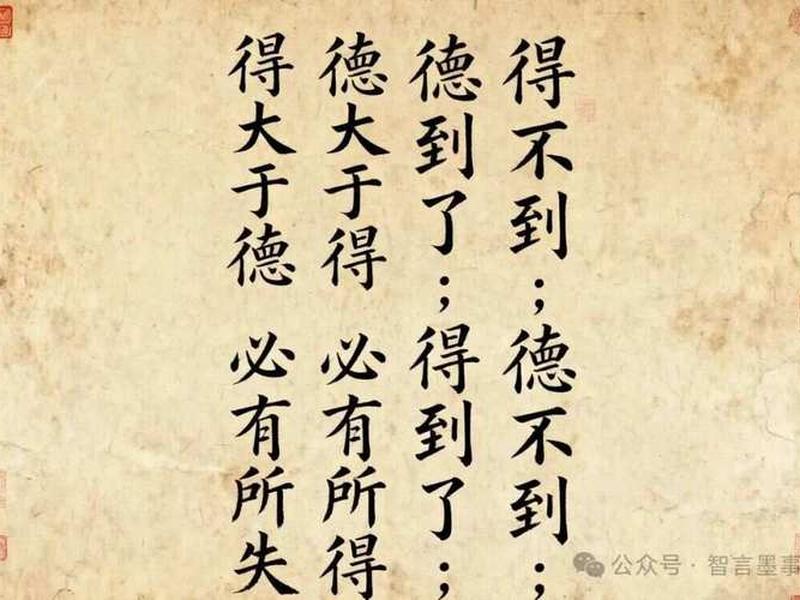 得不到；德不到；
德到了；得到了；
德大于得 必有所得
得大于德 必有所失
公众号·智言墨事